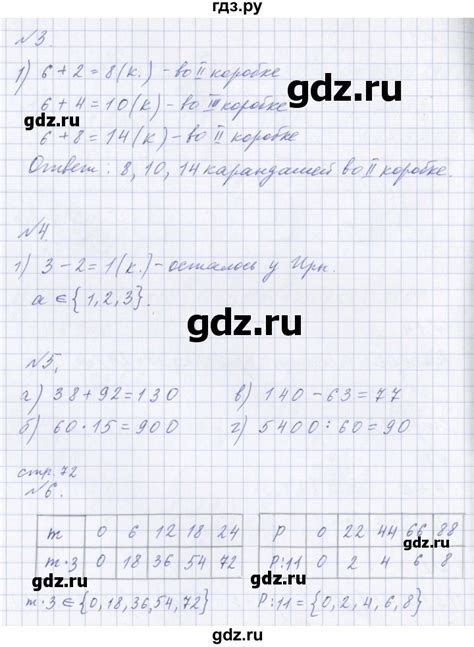 гдз.ру
№3.
1) 6 + 2 = 8 (к.) - во II коробке
6 + 4 = 10 (к) - во II коробке
6 + 8 = 14 (к) - во II коробке
Ответ: 8, 10, 14 карандашей во II коробке.
№4
1) 3 - 2 = 1 (к.) - осталось у Ири.
a ∈ {1, 2, 3}.
№5.
г) 38 + 92 = 130 в) 140 - 63 = 77
б) 60 · 15 = 900 г) 5400 : 60 = 90
стр. 72
№6.
m 0 6 12 18 24 P 0 22 44 66 88
m·3 0 18 36 54 72 P:11 0 2 4 6 8
m·3 ∈ {0, 18, 36, 54, 72} P:11 = {0, 2, 4, 6, 8}
gdz.ru
gdz.ru
gdz.ru
gdz.ru
gdz.ru
gdz.ru
gdz.ru
gdz.ru
gdz.ru
gdz.ru